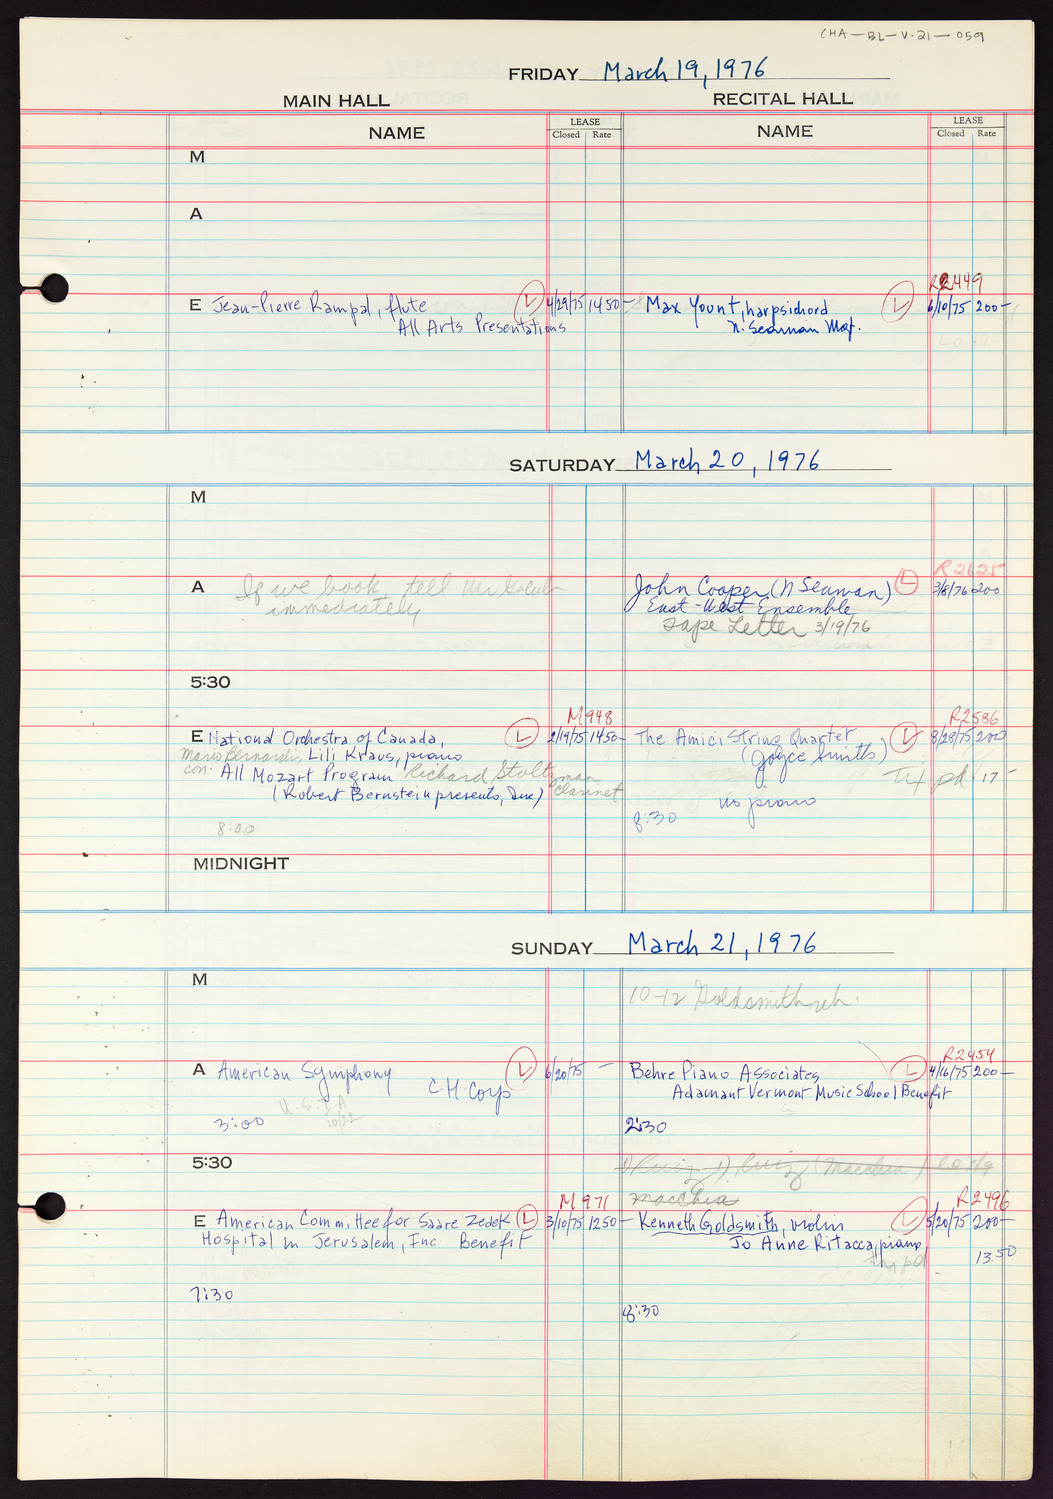 CHA-BL-V.21-059
FRIDAY March 19, 1976
MAIN HALL
RECITAL HALL
NAME
LEASE
Closed Rate
NAME
LEASE
Closed Rate
M
A
R2449
E Jean-Pierre Rampal, flute L 4/29/75 1450-
All Arts Presentations
Max Yount, harpsichord L 6/10/75 200-
N. Seaman Mgt.
SATURDAY March 20, 1976
M
A If we book, tell Mr
immediately
R2625
John Cooper (N Seaman) L 3/8/76 200
East-West Ensemble
Tape Letter 3/19/76
5:30
M948
E National Orchestra of Canada, L 2/19/75 1450-
Mario Bernardi, Lili Kraus, piano
con. All Mozart Program Richard Stoltzman
(Robert Bernstein presents, Inc) clarinet
8:00
R2586
The Amici String Quartet L 8/28/75 200
(Joyce Smith)
Tix pd 17-
no piano
8:30
MIDNIGHT
SUNDAY March 21, 1976
M
10-12 Goldsmith reh.
A American Symphony L 6/20/75 -
C.H Corp
3:00
10/22
R2454
Behre Piano Associates L 4/16/75 200-
Adamant Vermont Music School Benefit
2:30
5:30
1) Ruiz 1) Ruiz (Macchia)
Macchia
M971
E American Committee for Saare Zedek L 3/10/75 1250-
Hospital in Jerusalem, Inc Benefit
7:30
R2496
Kenneth Goldsmith, violin L 5/20/75 200-
Jo Anne Ritacca, piano
pd 13.50
8:30